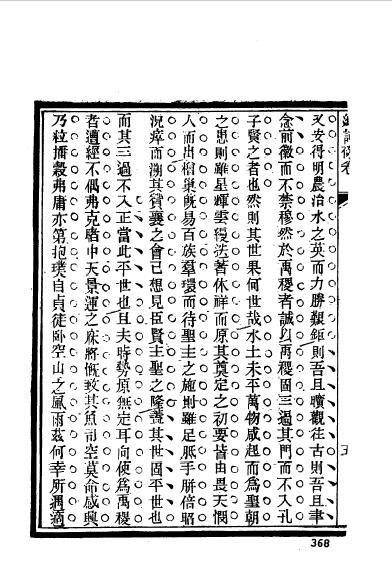 又安得明農治水之英而力勝艱鉅則吾且曠觀往古則吾且聿
念前徽而不禁穆然於禹稷者誠以禹稷固三過其門而不入孔
子賢之者也然則其世果何世哉水土未平萬物咸起而為聖朝
之患則雖星輝雲縵法著休祥而原其奠定之初要皆由畏天憫
人而出檜巢既易百族羣環而待聖主之施則雖足胝手胼倍昭
況瘁而溯其贊襄之會已想見臣賢主聖之隆葢其世固平世也
而其三過不入正當此平世也且夫時勢原無定耳向使為禹稷
者遭經不偶弗克賭中天景運之庥將慨致其魚司空莫命咸興
乃粒播穀弗庸亦第抱璞自貞徒臥空山之風雨茲何幸所遇適
368